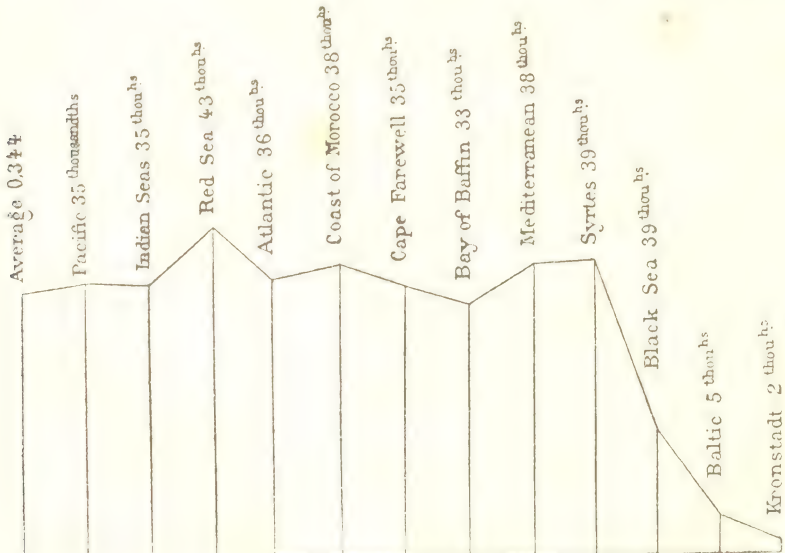 Average 0.344
Pacific 35 thousandths
Indian Seas 35 thouhs
Red Sea 43 thouhs
Atlantic 36 thouhs
Coast of Morocco 38 thouhs
Cape Farewell 35 thouhs
Bay of Baffin 33 thouhs
Mediterranean 38 thouhs
Syrtes 39 thouhs
Black Sea 39 thouhs
Baltic 5 thouhs
Kronstadt 2 thouhs